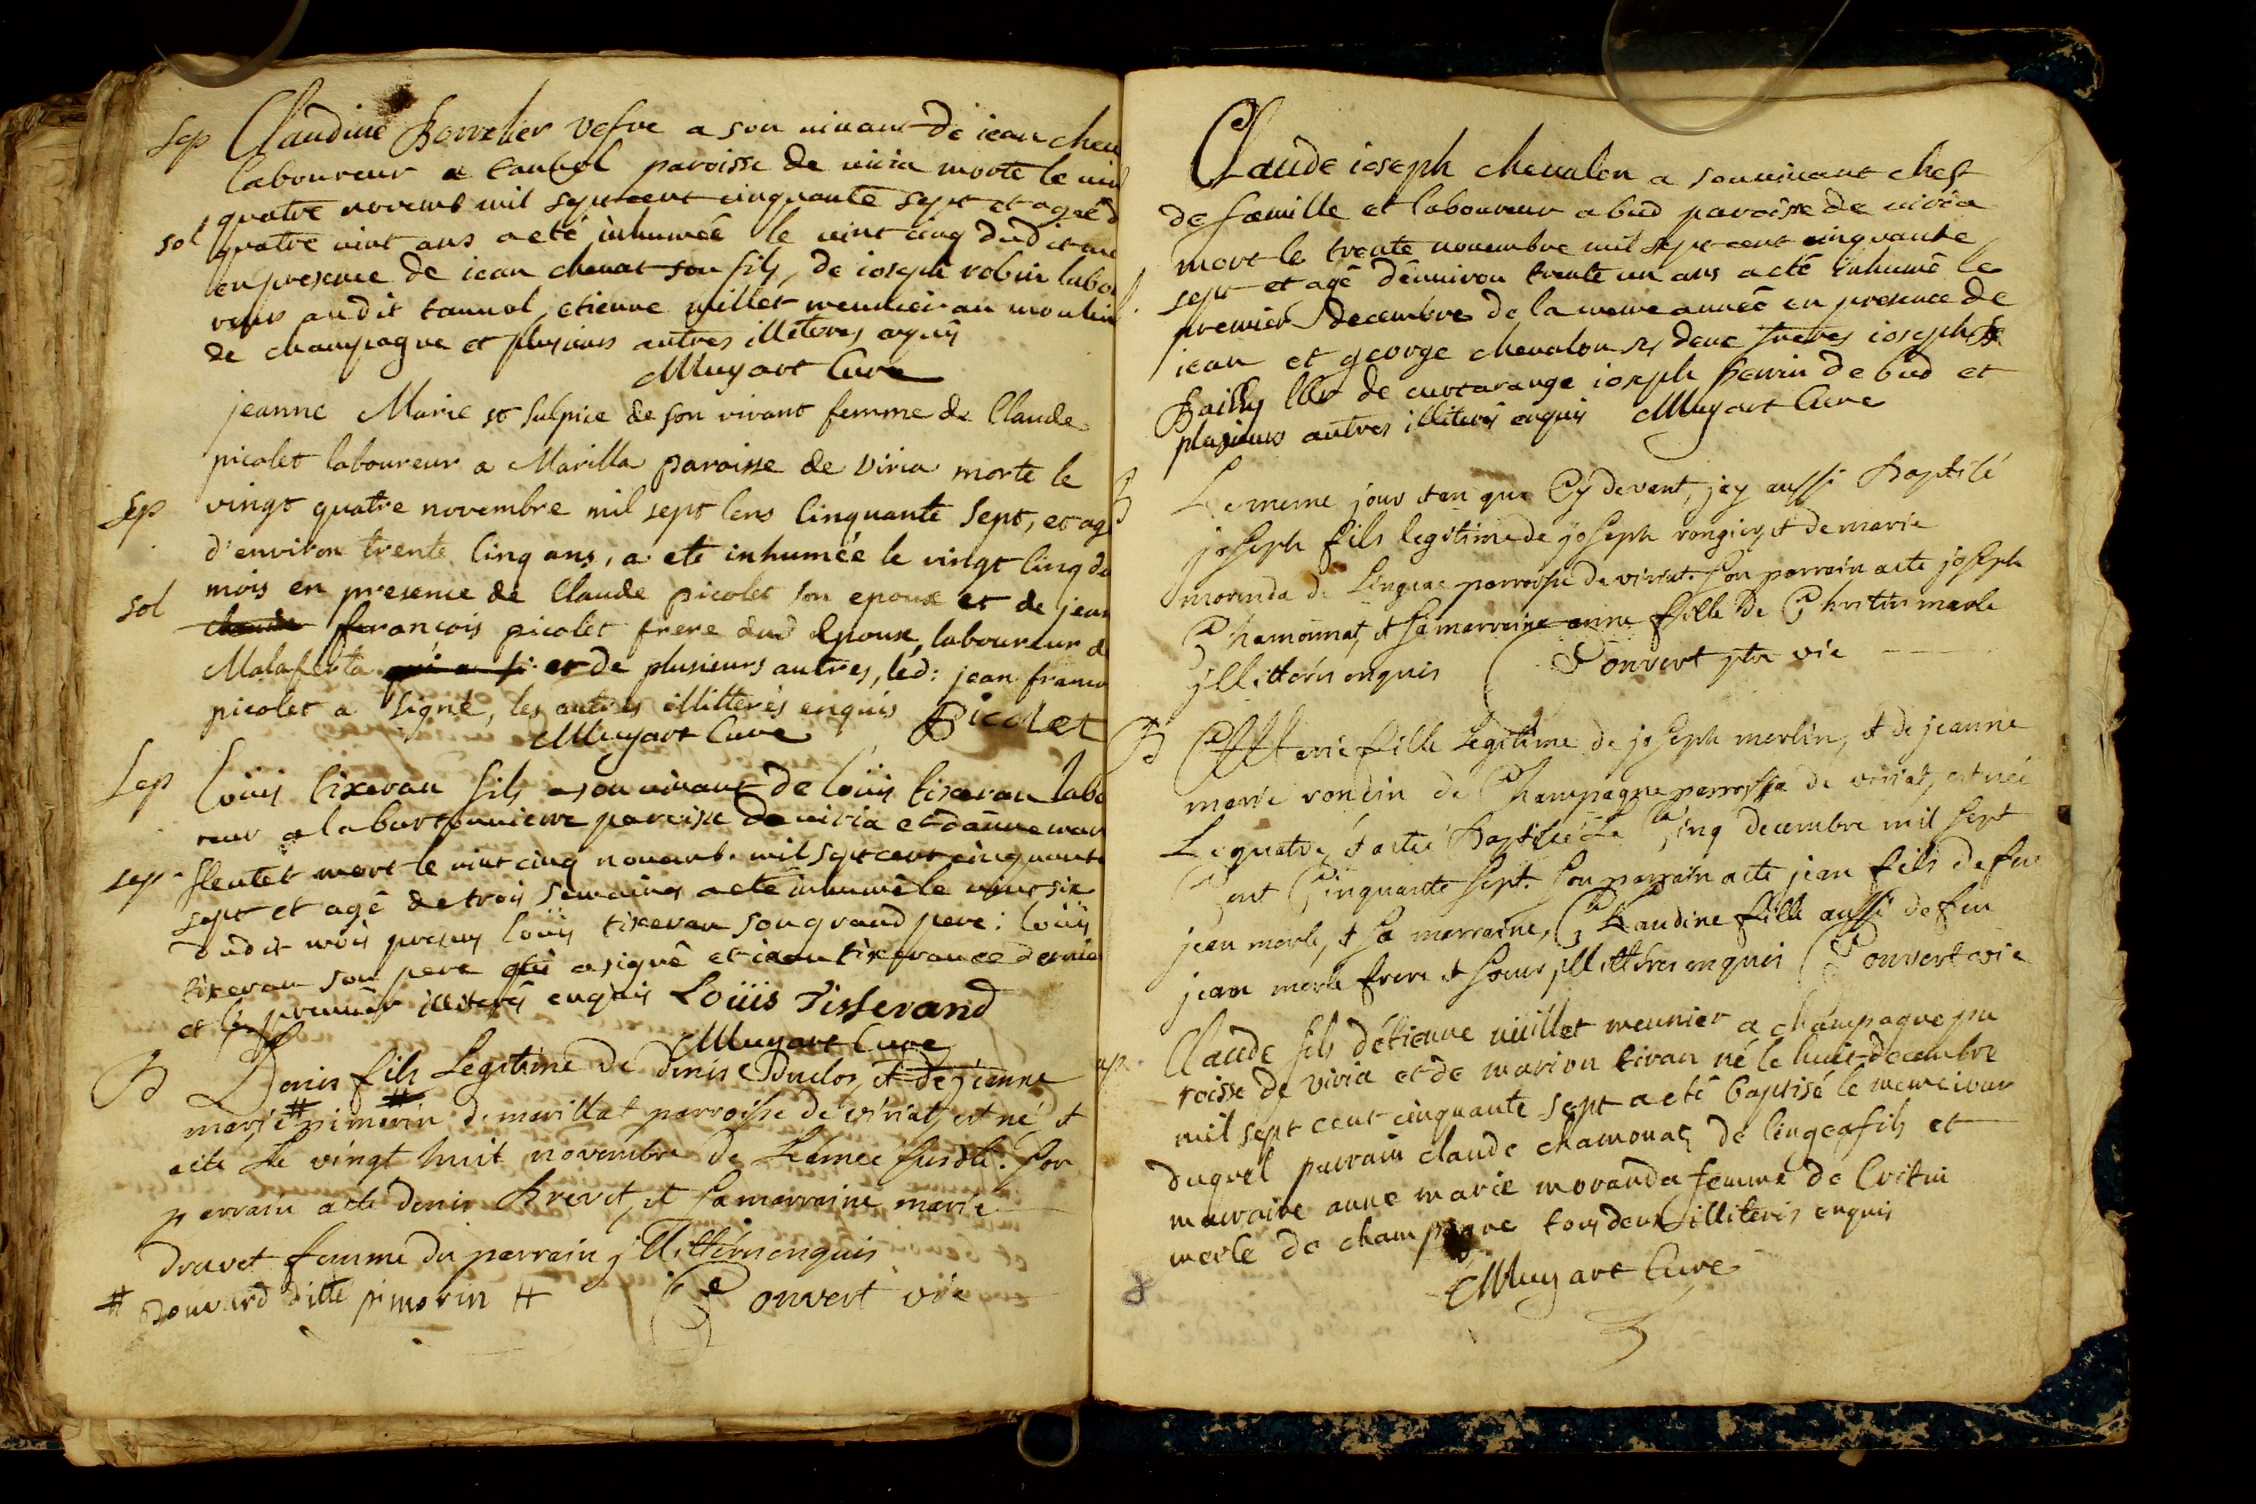 sep Claudine Borrelier vefve a son vivant de iean chev
laboureur a tanvol paroisse de viria morte le vin
quatre novemb mil sept cent cinquante sept et ageé d
sol quatre vint ans a eté inhumeé le vint cinq dudit
en presence de iean chenat son fils, de ioseph robin labou
reurs audit tanvol, etienne millet meunier au moulin
de champagne et plusieurs autres illiteres enquis
Muyart Curé
jeanne Marie st sulpice de son vivant femme de Claude
picolet laboureur a Marilla paroisse de viria morte le
sep vingt quatre novembre mil sept cens cinquante sept, et agé
d'environ trente cinq ans, a eté inhumée le vingt cinq du
sol mois en presence de Claude picolet son epoux et de jean
claude francois picolet frere dud epoux, laboureur a
Malaferta qui a si et de plusieurs autres, led: jean franco
picolet a signé, les autres illitterés enquis Picolet
Muyart Curé
sep Loüis tixeran fils a son vivant de loüis tixeran labo
reur a la bartonniere paroisse de viria et danne mar
sep fleutet mort le vint cinq novemb. mil sept cent cinquante
sept et agé de trois semaines a eté inhumé le vint six
dudit mois presens loüis tixeran son grand pere: loüis
tixeran son pere qui a signé et iean tixeran ce dernier
et le premier illiterés enquis Loüis Tisserand
Muyart Curé
B Denis fils Legitime de denis Duclos, et de jeanne
marie # pimorin de marillat parroisse de viriat, est né, et
a ete le vingt huit novembre de L'année susdte. son
parrain a ete denis Brevet, et sa marraine marie
dravet femme du parrain jllitterés enquis
# Bouvard ditte pimorin # Convert vic
Claude ioseph chevalon a son vivant chef
de famille et laboureur a bud paroisse de viria
mort le trente novembre mil sept cent cinquante
sept et agé d'environ trente un ans a eté inhumé le
premier decembre de la meme anneé en presence de
iean et george chevalon ses deux freres ioseph
Bailly de curtarange ioseph perrin de bud et
plusieurs autres illiterés enquis Muyart Curé
B Le meme jour et an que Cy devant, jay aussi Baptisé
joseph fils legitime de joseph rongier, et de marie
moranda de Lingeat parroisse de viriat. son parrain a ete joseph
Chamonnat, et sa marraine anne fille de Christin merle
jllitterés enquis Convert ptr vic
B Marie fille Legitime de joseph merlin, et de jeanne
marie rondin de Champagne parroisse de viriat, est née
Le quatre, et a eté Baptisée Le Cinq decembre mil sept
Cent Cinquante sept. son parrain a ete jean fils de feu
jean merle, et sa marraine, Claudine fille aussi de feu
jean merle frere et soeur jllitterés enquis Convert vic
ap. Claude fils d'étienne müillet meunier a champagne pa
roisse de viria et de marion tivan né le huit decembre
mil sept cent cinquante sept a eté baptisé le meme iour
duquel parrain claude chamonat de lingea fils et
marraine anne marie moranda femme de Critin
merle de champagne tous deux illiterés enquis
Muyart Curé